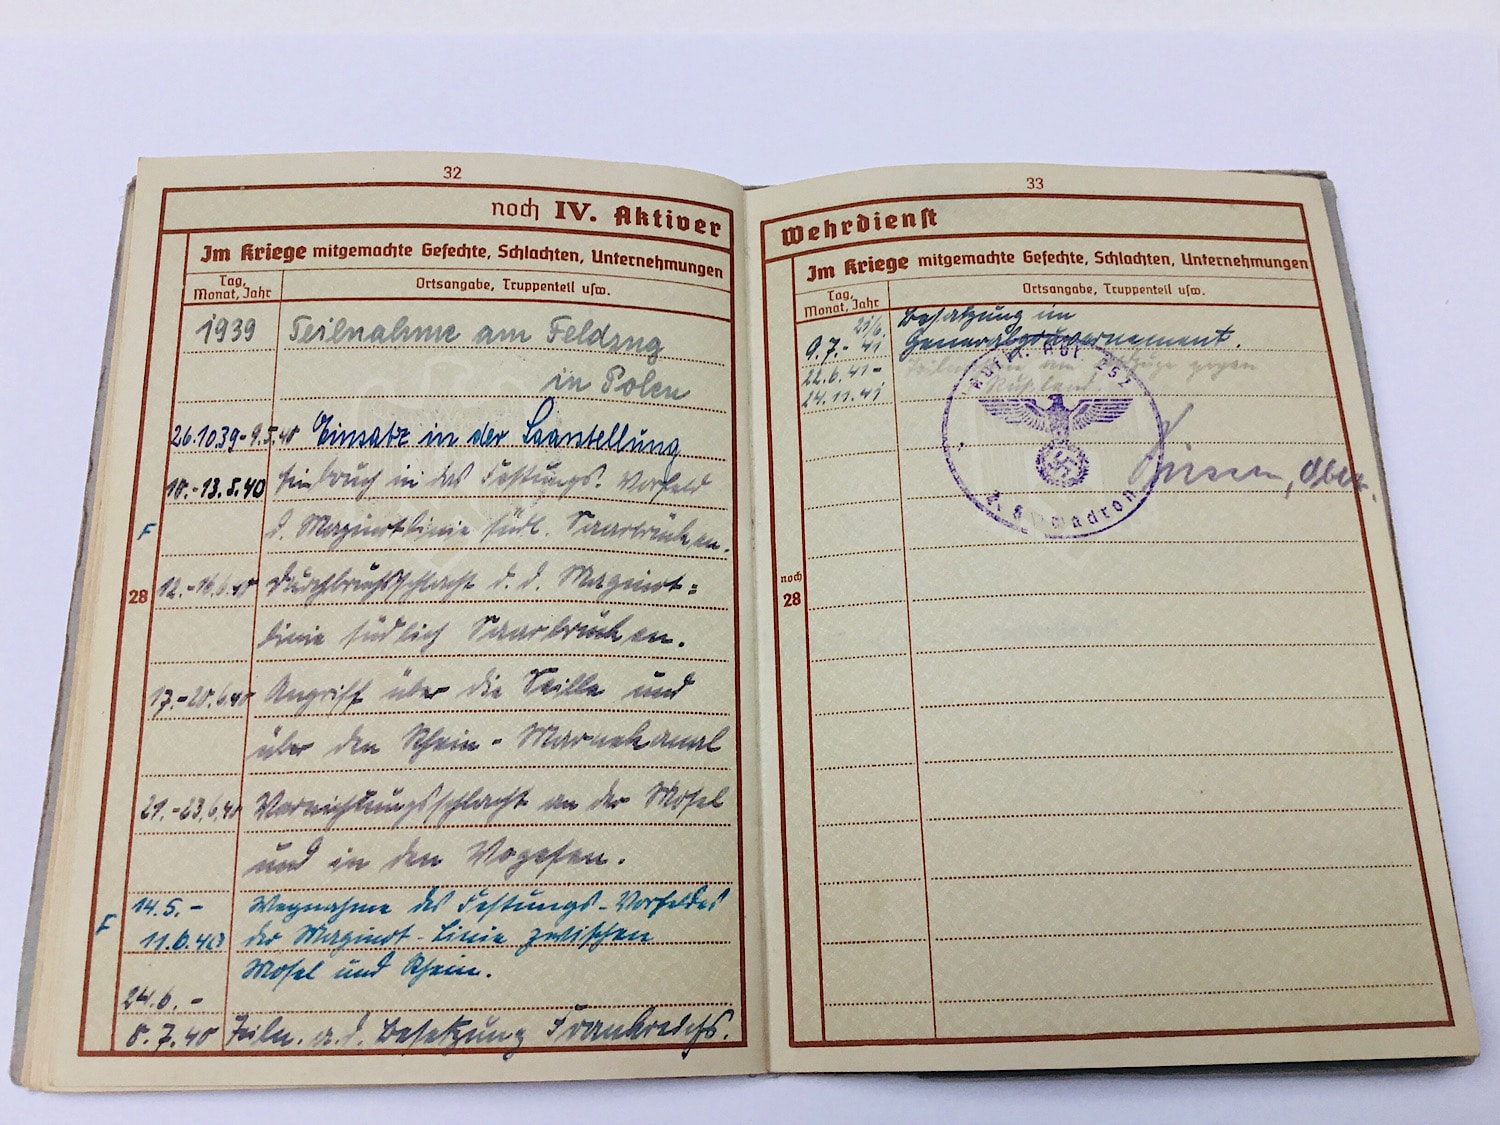 32
noch IV. Aktiver
Im Kriege mitgemachte Gefechte, Schlachten, Unternehmungen
Tag,
Monat, Jahr
Ortsangabe, Truppenteil usw.
1939 Teilnahme am Feldzug
in Polen
26.10.39-9.5.40 Einsatz in der Saarstellung
10.-13.5.40 Einbruch in das Festungs. Vorfeld
F
d. Maginotlinie südl. Saarbrücken.
28
12.-16.6.40 Durchbruchsschlacht d. d. Maginot=
linie südlich Saarbrücken.
17.-20.6.40 Angriff über die Seille und
über den Rhein-Marnekanal
21.-23.6.40 Vernichtungsschlacht an der Mosel
und in den Vogesen.
F
14.5.- Wegnahme des Festungs-Vorfeldes
11.6.40 der Maginot-Linie zwischen
Mosel und Rhein.
24.6.-
8.7.40 Teiln. a. d. Besetzung Frankreichs.
33
Wehrdienst
Im Kriege mitgemachte Gefechte, Schlachten, Unternehmungen
Tag,
Monat, Jahr
Ortsangabe, Truppenteil usw.
21/6. Besatzung im
9.7.- 41 Generalgouvernement.
22.6.41- Teilnahme am Feldzuge gegen
24.11.41 Rußland.
Aufkl. Abt. 252
2. Schwadron
noch
28